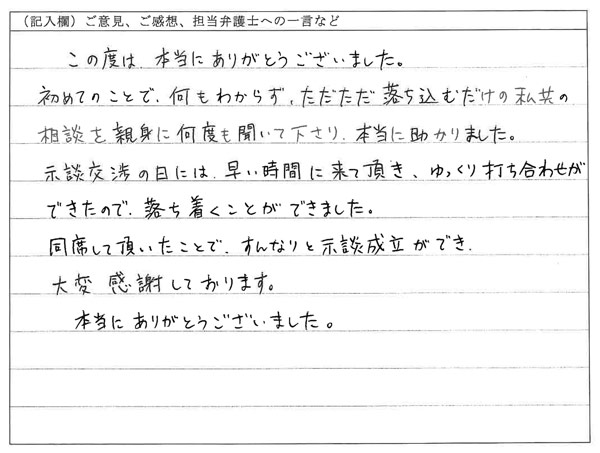 （記入欄）ご意見、ご感想、担当弁護士への一言など
この度は、本当にありがとうございました。
初めてのことで、何もわからず、ただただ落ち込むだけの私共の
相談を親身に何度も聞いて下さり、本当に助かりました。
示談交渉の日には、早い時間に来て頂き、ゆっくり打ち合わせが
できたので、落ち着くことができました。
同席して頂いたことで、すんなりと示談成立ができ、
大変感謝しております。
本当にありがとうございました。